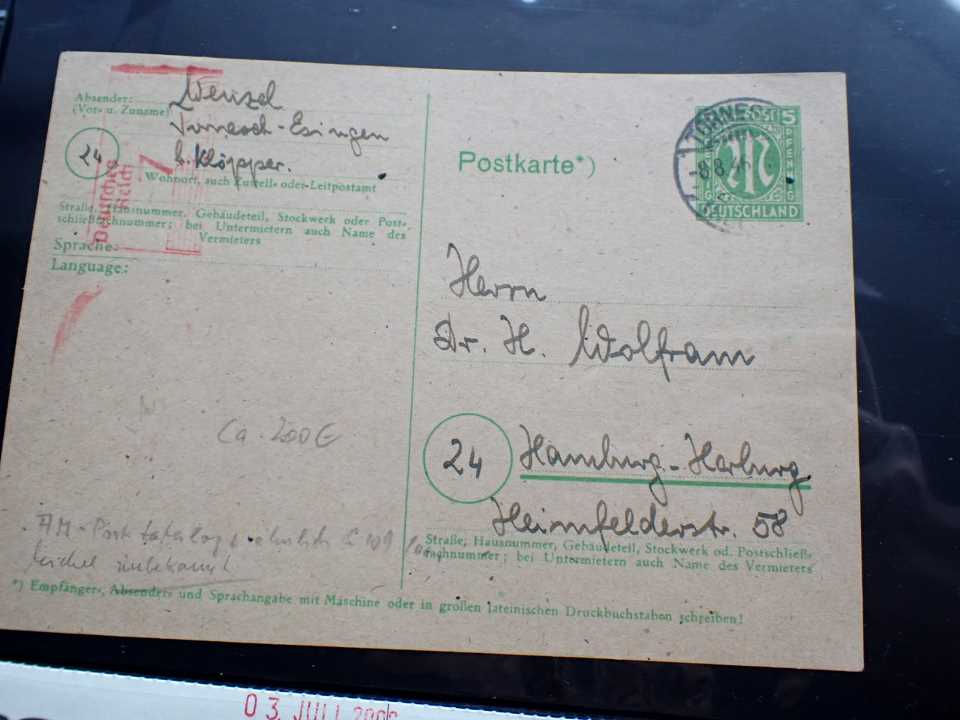 Absender: Wensel
(Vor- u. Zuname)
Tornesch-Esingen
24
b. Klöpper.
Wohnort, auch Zustell- oder Leitpostamt
Deutsches
Reich
Straße, Hausnummer, Gebäudeteil, Stockwerk oder Post-
schließfachnummer; bei Untermietern auch Name des
Vermieters
Sprache:
Language:
Ca. 200€
AM-Post
unbekannt
Postkarte*)
TORNESCH
-8.8.46
5
PFENNIG
DEUTSCHLAND
Herrn
Dr. H. Wolfram
24
Hamburg-Harburg
Heimfelderstr. 58
Straße, Hausnummer, Gebäudeteil, Stockwerk od. Postschließ-
fachnummer; bei Untermietern auch Name des Vermieters
*) Empfänger-, Absender- und Sprachangabe mit Maschine oder in großen lateinischen Druckbuchstaben schreiben!
03. JULI